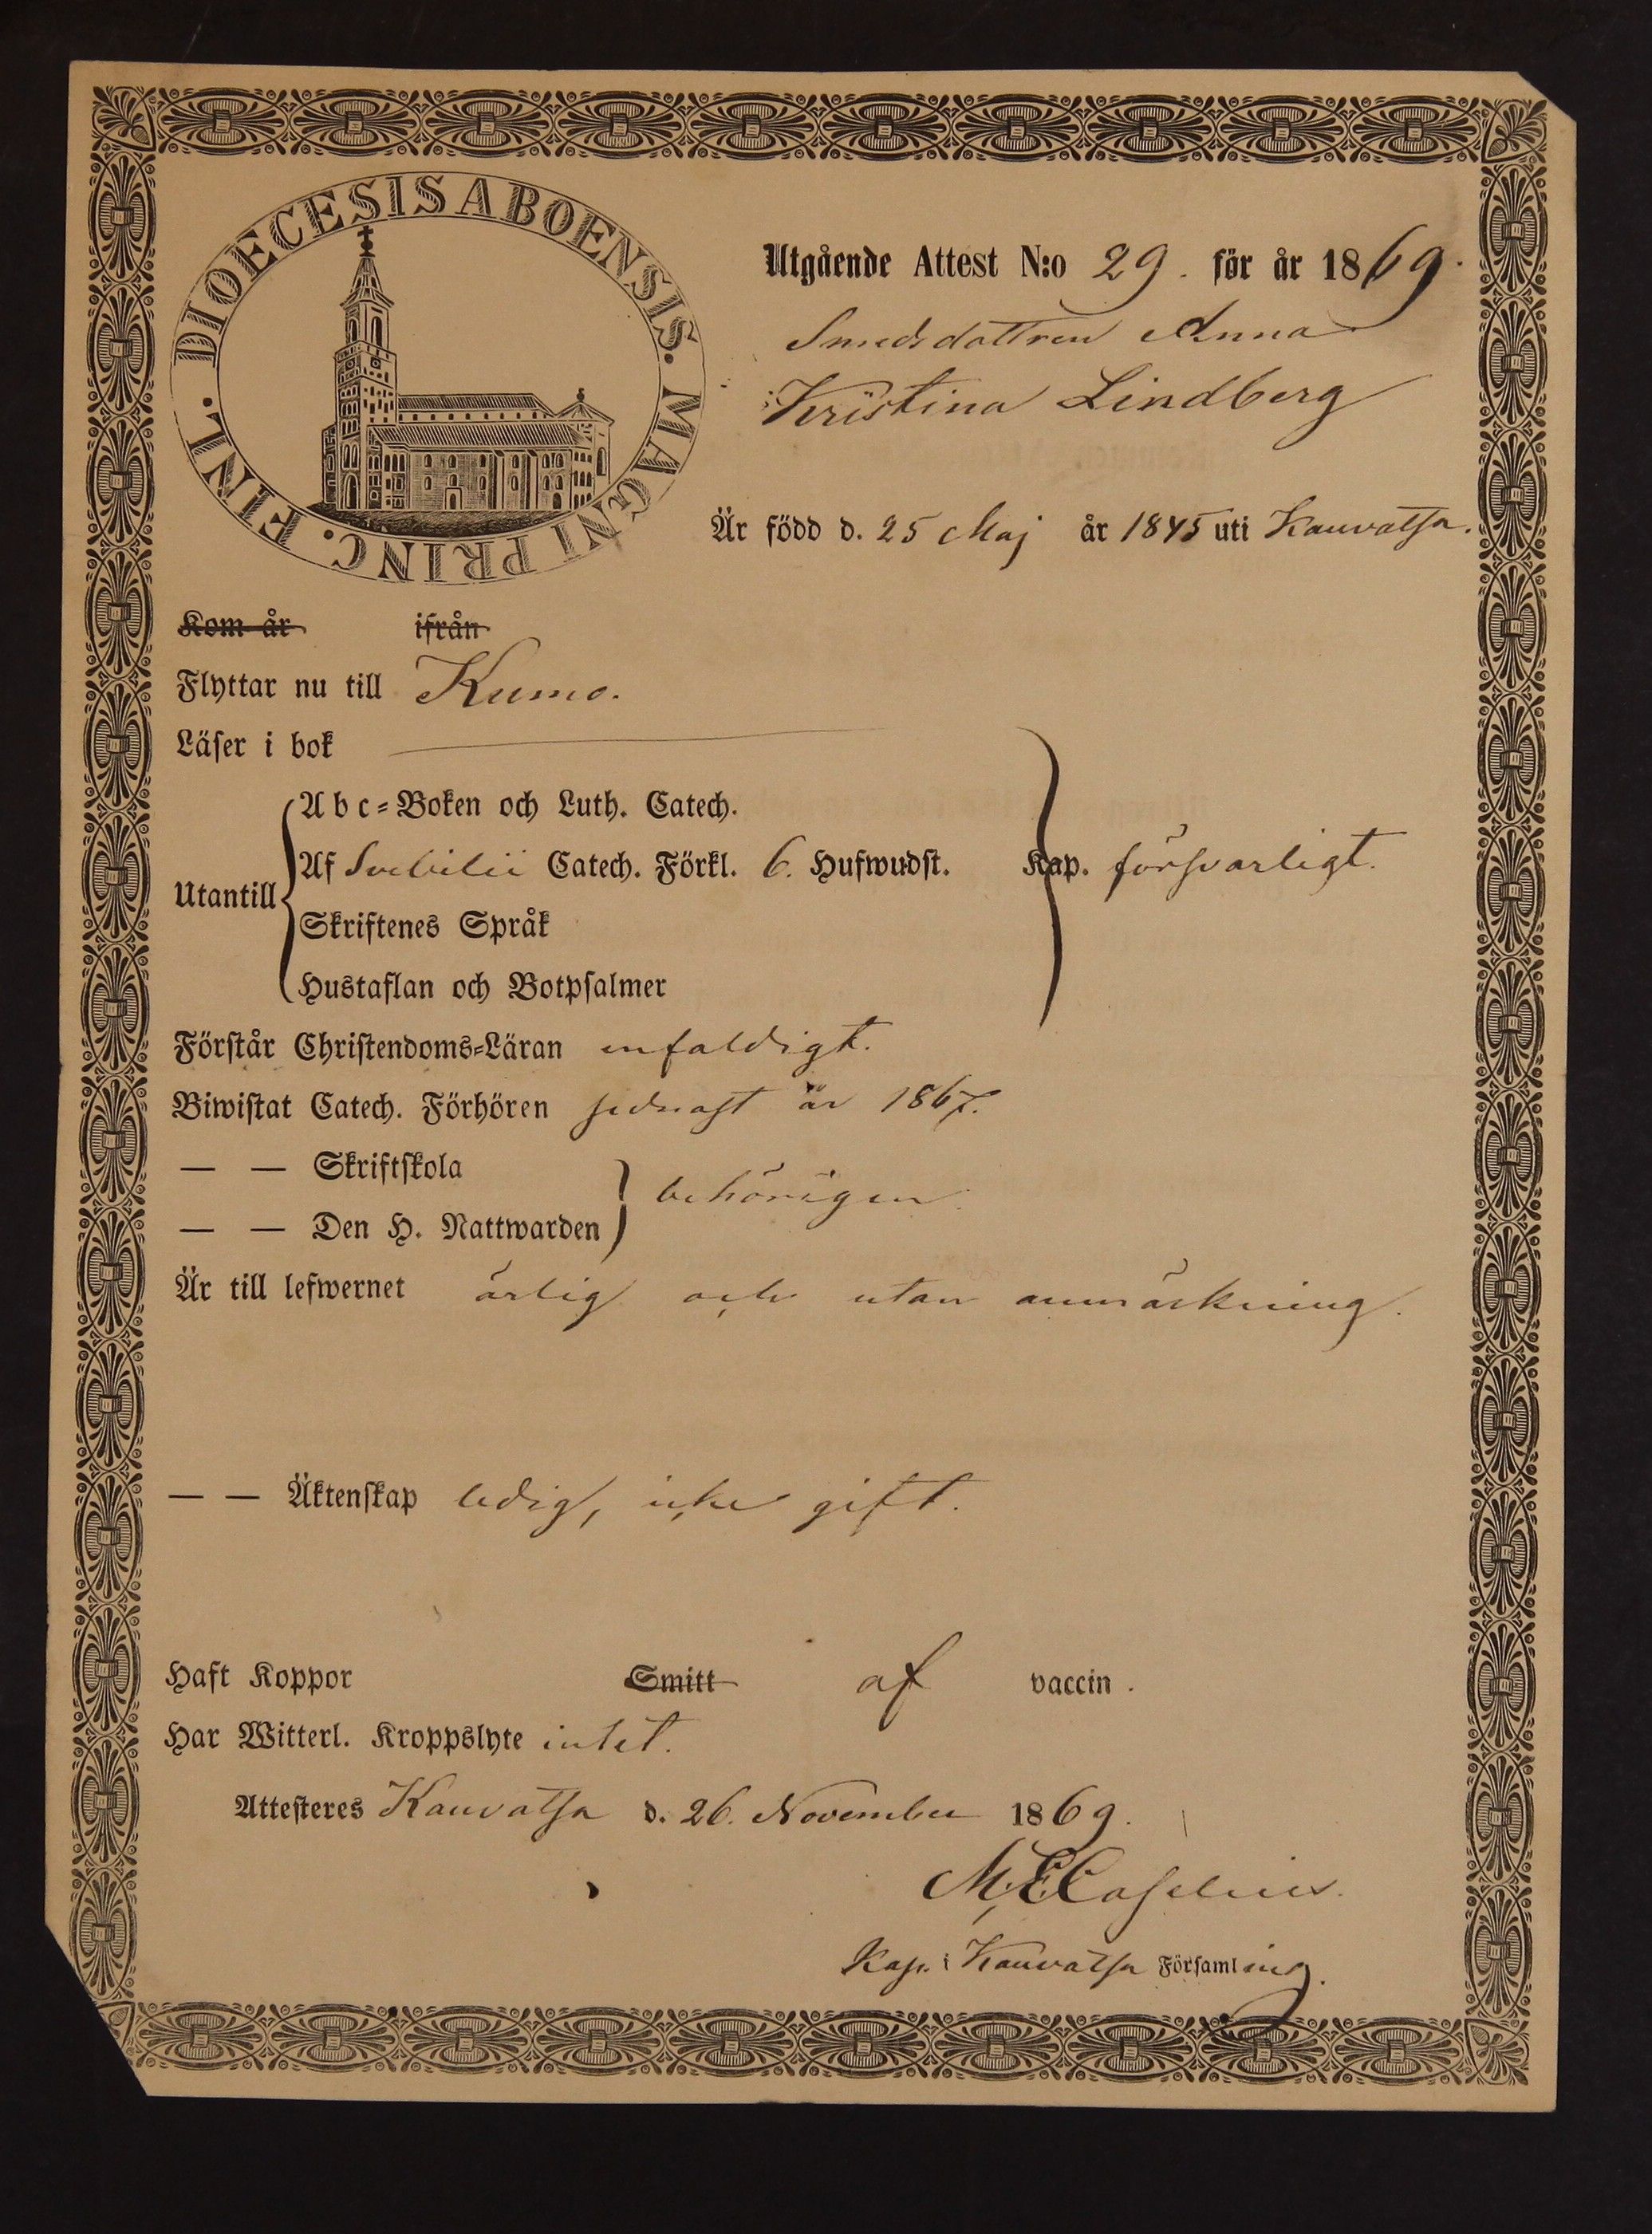 DIOECESIS ABOENSIS. MAGNI PRINC. FINL.
Utgående Attest N:o 29. för år 1869.
Smedsdottren Anna
Kristina Lindberg
Är född d. 25 Maj år 1845 uti Kauvatsa.
Kom år ifrån
Flyttar nu till Kumo.
Läser i bok
Utantill
Abc-Boken och Luth. Catech.
Af Svebilii Catech. Förkl. 6. Hufwudst. Kap. försvarligt.
Skriftenes Språk
Hustaflan och Botpsalmer
Förstår Christendoms-Läran enfaldigt.
Biwistat Catech. Förhören sednast år 1867.
— — Skriftskola
behörigen.
— — Den H. Nattwarden
Är till lefwernet ärlig och utan anmärkning.
— — Äktenskap ledig, icke gift.
Haft Koppor Smitt af vaccin.
Har Witterl. Kroppslyte intet.
Attesteres Kauvatsa d. 26. November 1869.
M. E. Caselius.
Kap. i Kauvatsa Församling.